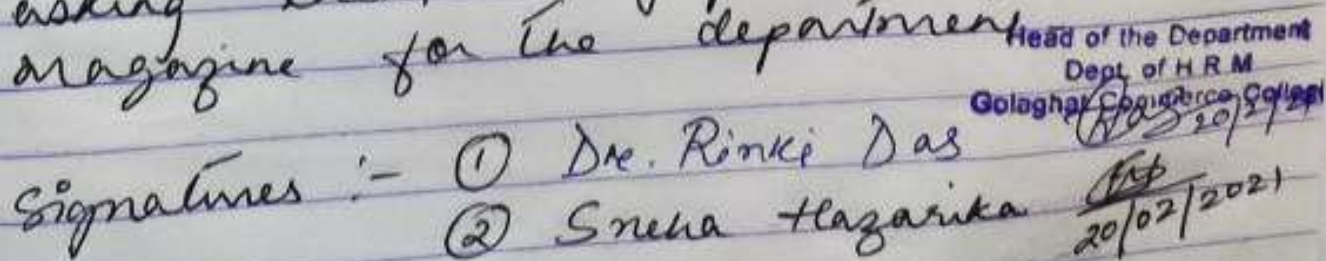 asking
magazine for the department
Head of the Department
Dept. of H R M
Golaghat Commerce College
20/2/21
Signatures :- ① Dr. Rinki Das
② Sneha Hazarika
20/02/2021